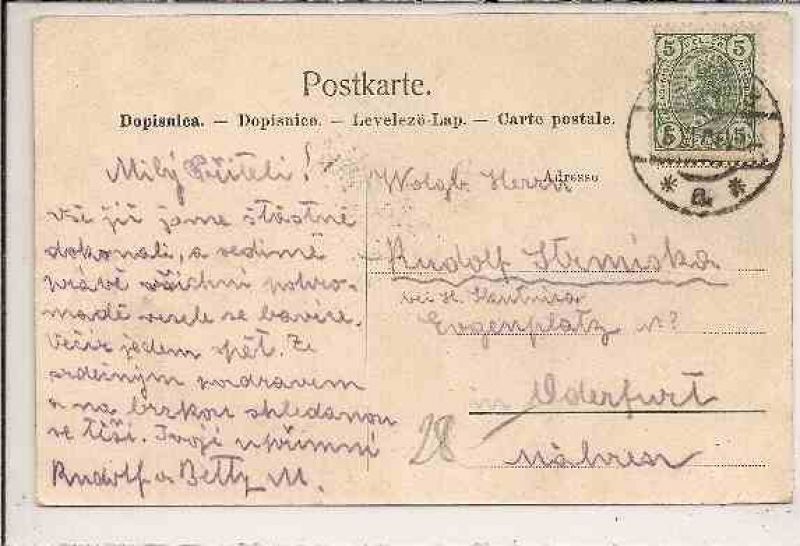 Postkarte.
Dopisnica. — Dopisnice. — Levelezö-Lap. — Carte postale.
Adresse
Milý Příteli!
Vše již jsme šťastně
dokonali, a sedíme
právě všichni pohro-
madě vesele se bavíce.
Večer jedem zpět. Ze
srdečným pozdravem
a na brzkou shledanou
se těší. Tvoji upřímní
Rudolf a Betty M.
Wolgb. Herrn
Rudolf Strniska
bei H.
Eugenplatz
in Oderfurt
Mähren
28
5 5
5 5